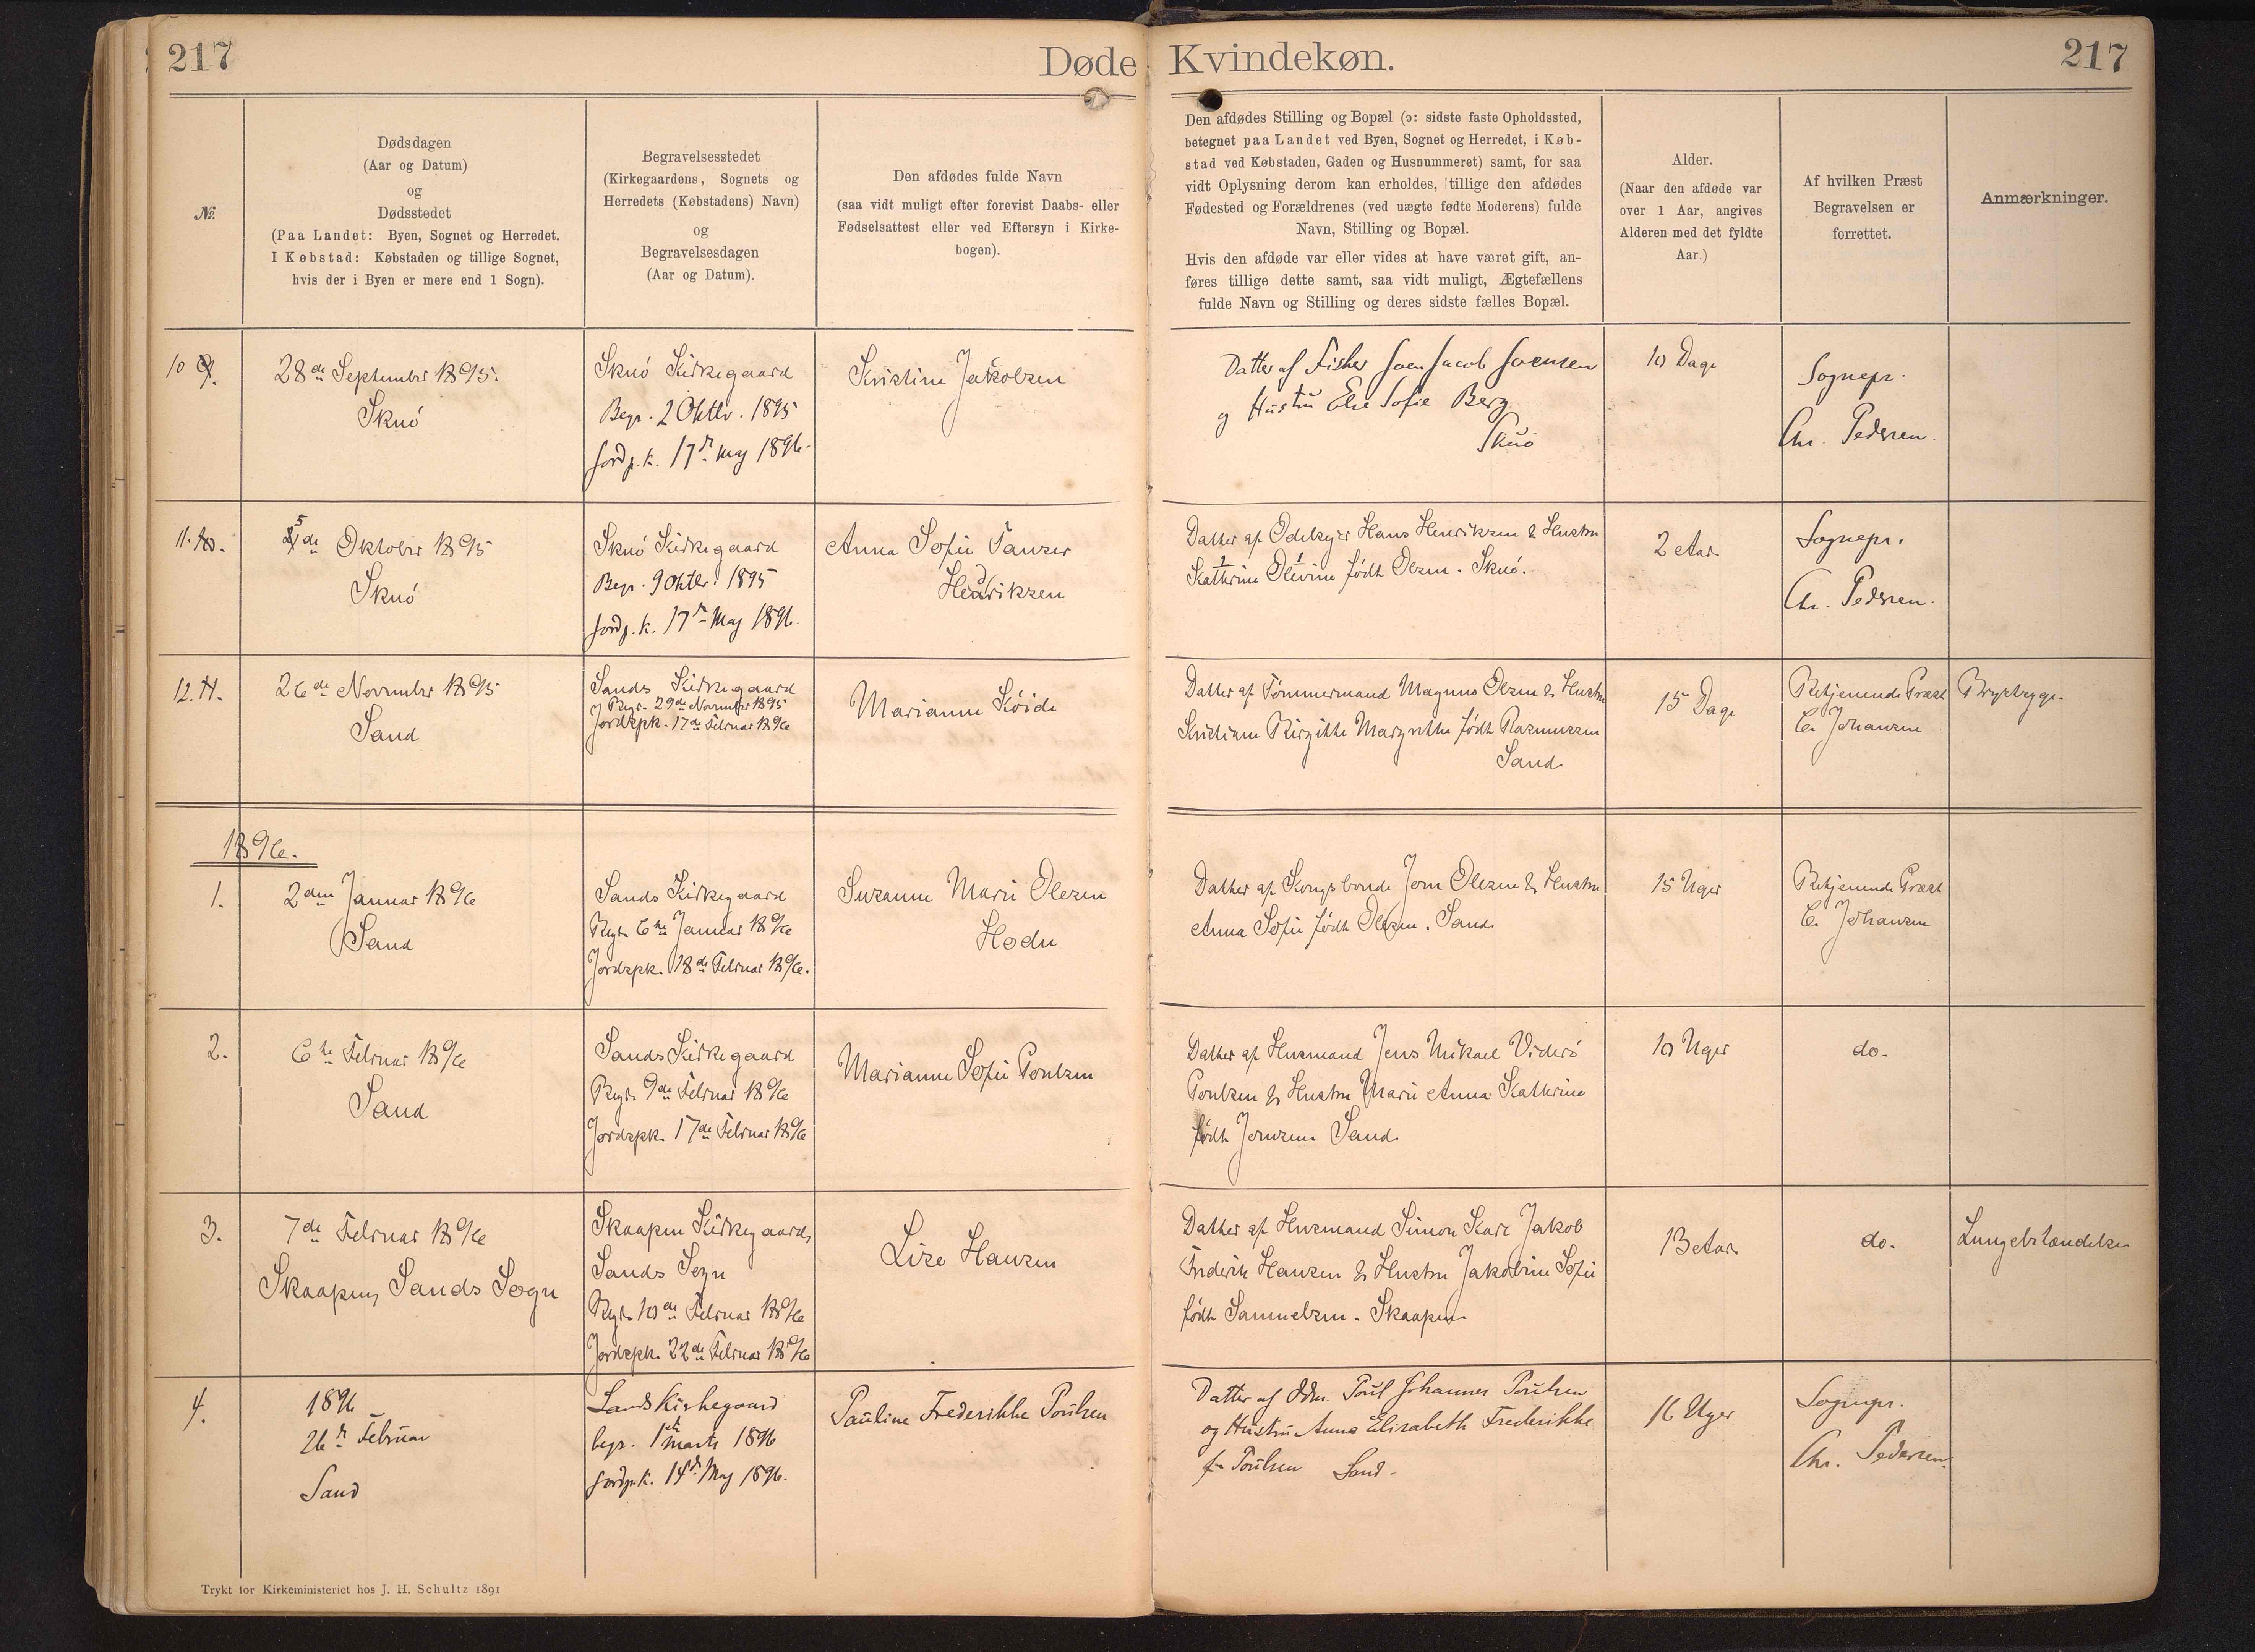 217
Døde Kvindekøn.
217
№.
Dødsdagen
(Aar og Datum)
og
Dødsstedet
(Paa Landet: Byen, Sognet og Herredet.
I Købstad: Købstaden og tillige Sognet,
hvis der i Byen er mere end 1 Sogn).
Begravelsesstedet
(Kirkegaardens, Sognets og
Herredets (Købstadens) Navn)
og
Begravelsesdagen
(Aar og Datum).
Den afdødes fulde Navn
(saa vidt muligt efter forevist Daabs- eller
Fødselsattest eller ved Eftersyn i Kirke-
bogen).
Den afdødes Stilling og Bopæl (ɔ: sidste faste Opholdssted,
betegnet paa Landet ved Byen, Sognet og Herredet, i Køb-
stad ved Købstaden, Gaden og Husnummeret) samt, for saa
vidt Oplysning derom kan erholdes, tillige den afdødes
Fødested og Forældrenes (ved uægte fødte Moderens) fulde
Navn, Stilling og Bopæl.
Hvis den afdøde var eller vides at have været gift, an-
føres tillige dette samt, saa vidt muligt, Ægtefællens
fulde Navn og Stilling og deres sidste fælles Bopæl.
Alder.
(Naar den afdøde var
over 1 Aar, angives
Alderen med det fyldte
Aar.)
Af hvilken Præst
Begravelsen er
forrettet.
Anmærkninger.
10 9.
28de September 1895.
Skuó
Skuó Kirkegaard
Begr. 2 Oktbr. 1895
Jordp.k. 17de Maj 1896.
Kristine Jakobsen
Datter af Fisker Joen Jacob Joensen
og Hustru Else Sofie Berg
Skuö
10 Dage
Sognepr.
Chr. Pedersen.
11. 10.
5de Oktober 1895
Skuó
Skuó Kirkegaard
Begr. 9 Oktbr. 1895
Jordp.k. 17de Maj 1896.
Anna Sofie Hansen
Hendriksen
Datter af Odelsejer Hans Henriksen & Hustru
Kathrine Olevine født Olsen. Skuó.
2 Aar.
Sognepr.
Chr. Pedersen.
12. 11.
26de November 1895
Sand
Sands Kirkegaard
Begr. 29de November 1895
Jordspk. 17de Februar 1896
Marianne Kóide
Datter af Tømmermand Magnus Olsen & Hustru
Kristiane Birgitte Margrethe født Rasmussen
Sand.
15 Dage
Betjenende Præst
C. Johansen
Brystsyge.
1896.
1.
2den Januar 1896
Sand
Sands Kirkegaard
Begr. 6te Januar 1896
Jordspk. 18de Februar 1896.
Susanne Marie Olesen
Heden
Datter af Kongsbonde Joen Olesen & Hustru
Anna Sofie født Olesen. Sand.
15 Uger
Betjenende Præst
C. Johansen
2.
6te Februar 1896
Sand
Sands Kirkegaard
Begr. 9de Februar 1896
Jordspk. 17de Februar 1896
Marianne Sofie Poulsen
Datter af Husmand Jens Mikael Videró
Poulsen & Hustru Marie Anna Kathrine
født Joensen Sand.
10 Uger
do.
3.
7de Februar 1896
Skaapen, Sands Sogn
Skaapen Kirkegaard,
Sands Sogn
Begr. 10de Februar 1896
Jordspk. 22de Februar 1896
Lise Hansen
Datter af Husmand Simon Karl Jakob
Frederik Hansen & Hustru Jakobine Sofie
født Samuelsen. Skaapen.
13 Aar.
do.
Lungebetændelse
4.
1896
26de Februar
Sand
Sands Kirkegaard
begr. 1ste Marts 1896
Jordp.k. 14de Maj 1896.
Pauline Frederikke Poulsen
Datter af Hdm. Poul Johannes Poulsen
og Hustru Anna Elisabeth Frederikke
f. Poulsen Sand.
16 Uger
Sognepr.
Chr. Pedersen.
Trykt for Kirkeministeriet hos J. H. Schultz 1891